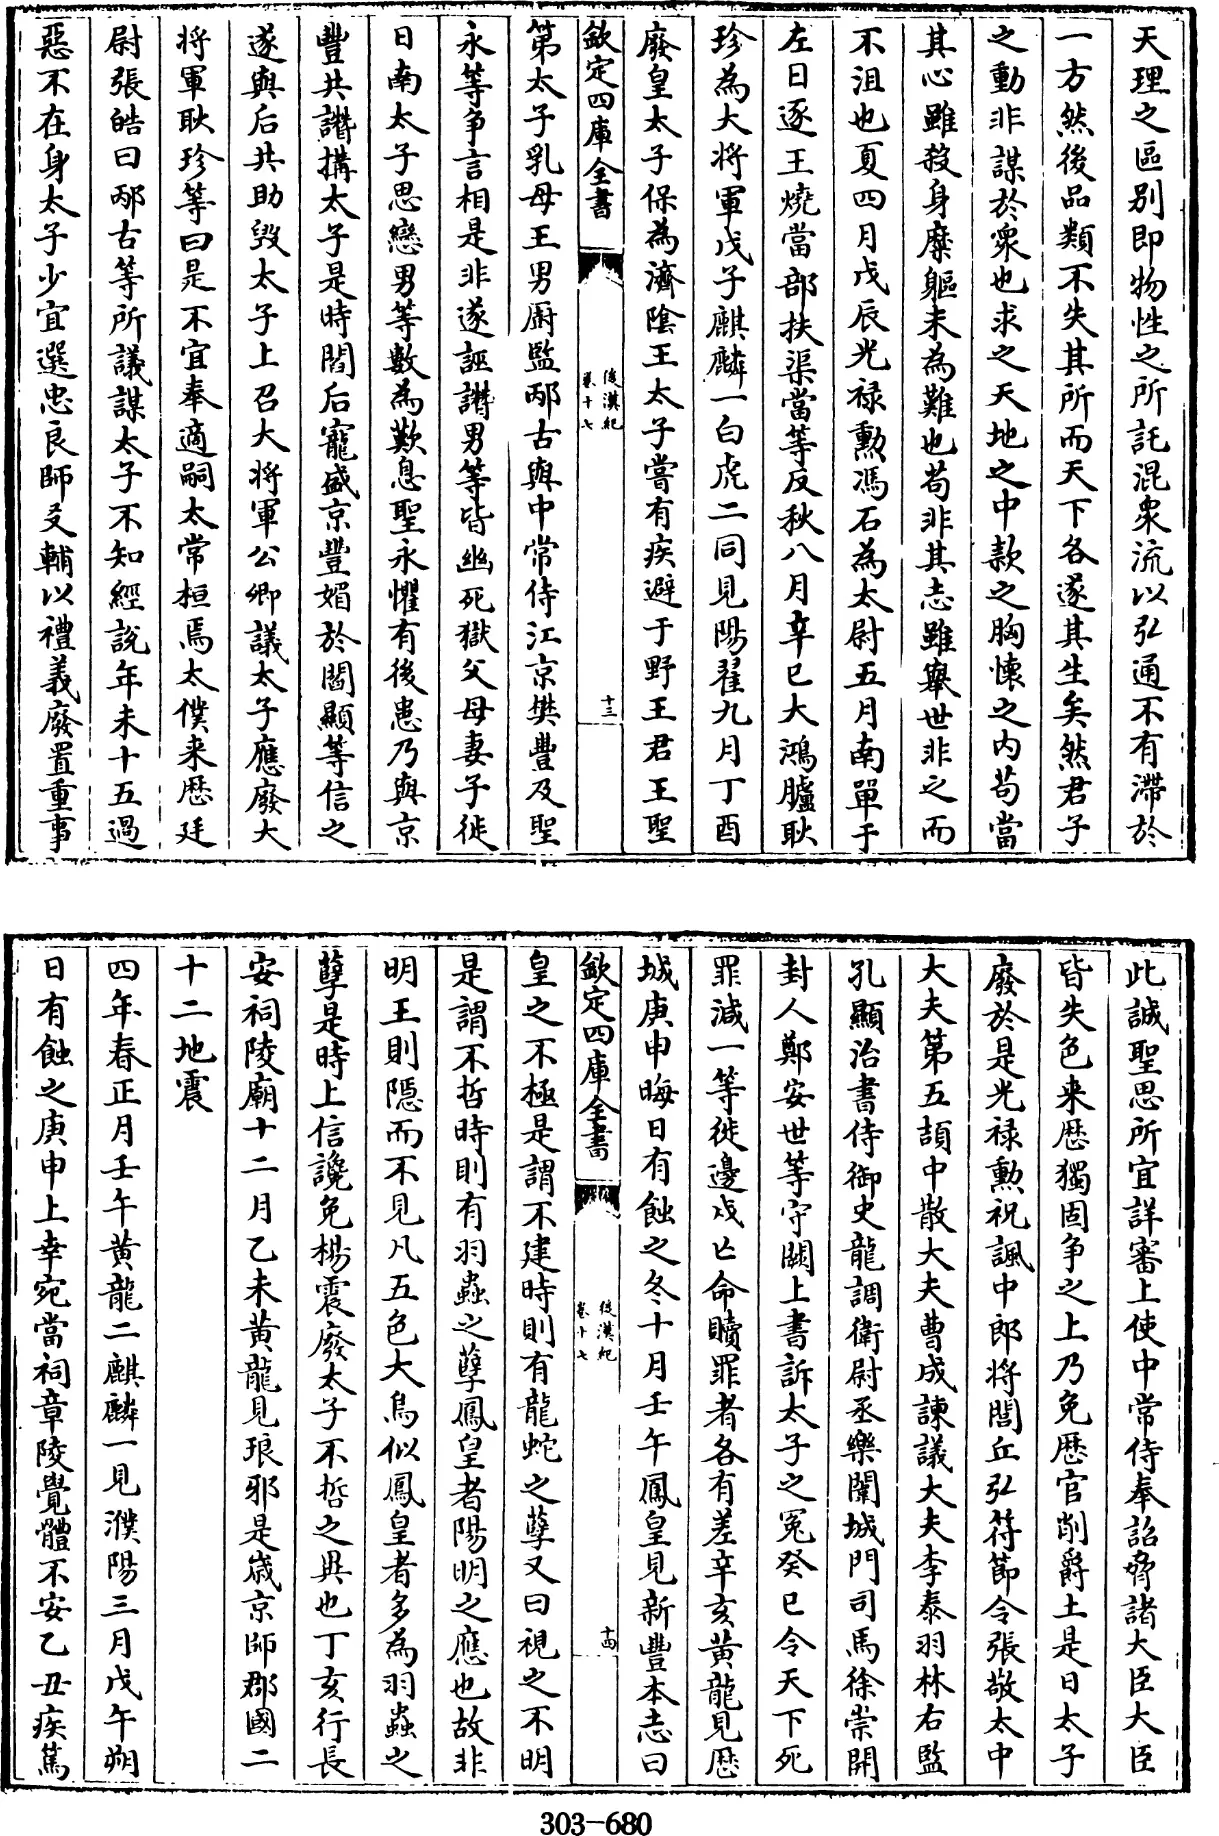 天理之區別即物性之所託混衆流以弘通不有滯於
一方然後品類不失其所而天下各遂其生矣然君子
之動非謀於衆也求之天地之中款之胸懷之内茍當
其心雖殺身糜軀未為難也茍非其志雖舉世非之而
不沮也夏四月戊辰光禄勲馮石為太尉五月南單于
左日逐王燒當部扶渠當等反秋八月辛巳大鴻臚耿
珍為大將軍戊子麒麟一白虎二同見陽翟九月丁酉
廢皇太子保為濟陰王太子嘗有疾避于野王君王聖
欽定四庫全書
後漢紀
卷十七
十三
第太子乳母王男廚監邴古與中常侍江京樊豐及聖
永等争言相是非遂誣譛男等皆幽死獄父母妻子徙
日南太子思戀男等數為歎息聖永懼有後患乃與京
豐共譛搆太子是時閻后寵盛京豐媚於閻顯等信之
遂與后共助毁太子上召大將軍公卿議太子應廢大
將軍耿珍等曰是不宜奉適嗣太常桓焉太僕来歴廷
尉張皓曰邴古等所議謀太子不知經說年未十五過
惡不在身太子少宜選忠良師叐輔以禮義廢置重事
此誠聖思所宜詳審上使中常侍奉詔脅諸大臣大臣
皆失色来歴獨固争之上乃免歴官削爵土是日太子
廢於是光禄勲祝諷中郎將閭丘弘符節令張敬太中
大夫第五頡中散大夫曹成諫議大夫李泰羽林右監
孔顯治書侍御史龍調衛尉丞樂闈城門司馬徐崇開
封人鄭安世等守闕上書訴太子之冤癸巳令天下死
罪減一等徙邊戍亡命贖罪者各有差辛亥黄龍見歴
城庚申晦日有蝕之冬十月壬午鳳皇見新豐本志曰
欽定四庫全書
後漢紀
卷十七
十四
皇之不極是謂不建時則有龍蛇之孽又曰視之不明
是謂不哲時則有羽蟲之孽鳳皇者陽明之應也故非
明王則隱而不見凡五色大鳥似鳳皇者多為羽蟲之
孽是時上信讒免楊震廢太子不哲之異也丁亥行長
安祠陵廟十二月乙未黄龍見琅邪是歳京師郡國二
十二地震
四年春正月壬午黄龍二麒麟一見濮陽三月戊午朔
日有蝕之庚申上幸宛當祠章陵覺體不安乙丑疾篤
303-680